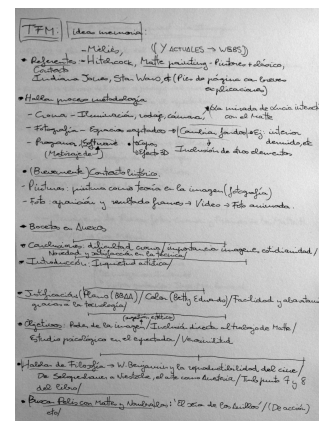 TFM: Ideas memoria:
- Méliès, (Y ACTUALES → WEBS)
• Referentes - Hitchcock, Matte painting - Pintores + clásico,
Contexto
Indiana Jones, Star Wars, etc (Pies de página con breves
explicaciones)
• Hablar proceso metodología
- Croma - Iluminación, rodaje, cámara,
la mirada de
con el Matte
- Fotografía - Espacios adaptados → Cambiar fondo Ej: interior
derruido, etc
- Programas / Software • capas
• efecto 3D
Inclusión de otros elementos
(Metraje)
• (Brevemente) Contexto histórico.
- Pinturas: pintura como teoría en la imagen (fotografía)
- Foto: aparición y resultado frames → Video → Foto animada.
• Bocetos en Anexos.
• Conclusiones: dificultad croma / importancia imagen, cotidianidad /
Novedad y satisfacción en la técnica /
• Introducción: Inquietud artística /
• Justificación (Plano (BBAA) / Color (Betty Edwards) / Facilidad y
gracias a la tecnología /
• Objetivos: Poder de la imagen / Inclusión directa al trabajo de Matte /
Estudio psicológico en el espectador / Verosimilitud
• Hablar de Filosofía → W. Benjamin y la reproductibilidad del cine /
De Schopenhauer a Nietzsche, el arte como / punto 7 y 8
del libro /
• Buscar Pelis con Matte y Analizarlas: 'El señor de los Anillos' / (De acción)
etc /